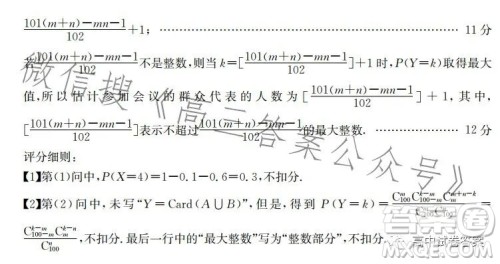 $\frac{101(m+n)-mn-1}{102}$+1; …………………………………… 11 分
若$\frac{101(m+n)-mn-1}{102}$不是整数,则当 k=[$\frac{101(m+n)-mn-1}{102}$]+1 时,P(Y=k)取得最大
值,所以估计参加会议的群众代表的人数为[$\frac{101(m+n)-mn-1}{102}$]+1,其中,
[$\frac{101(m+n)-mn-1}{102}$]表示不超过$\frac{101(m+n)-mn-1}{102}$的最大整数. ………… 12 分
评分细则:
【1】第(1)问中,P(X=4)=1-0.1-0.6=0.3,不扣分.
【2】第(2)问中,未写“Y=Card(A∪B)”,但是,得到 P(Y=k)=
,不扣分.最后一行中的“最大整数”写为“整数部分”,不扣分.
微信搜《高三答案公众号》
高中试卷答案